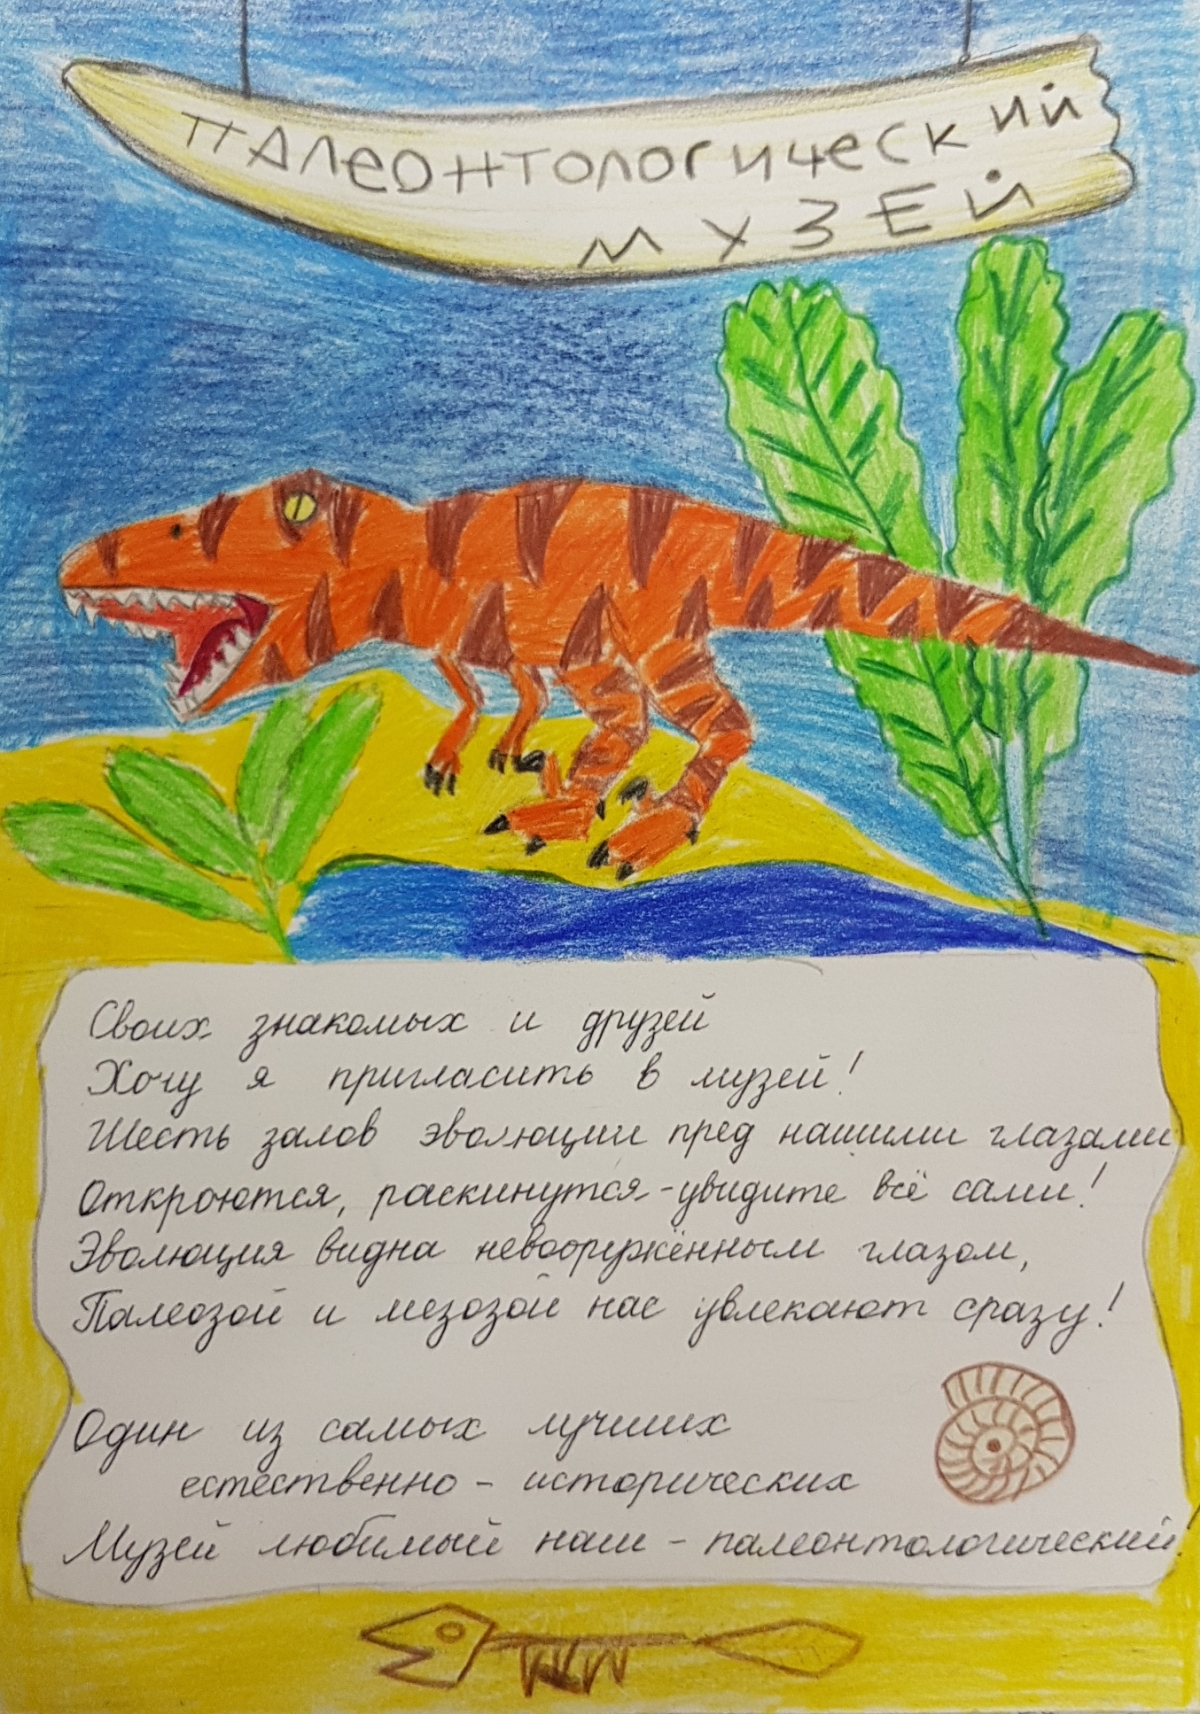 ПАЛеОНТОЛОГИЧЕСКИЙ
МУЗЕЙ
Своих знакомых и друзей
Хочу я пригласить в музей!
Шесть залов эволюции пред нашими глазами
Откроются, раскинутся - увидите всё сами!
Эволюция видна невооружённым глазом,
Палеозой и мезозой нас увлекают сразу!
Один из самых лучших
естественно - исторических
Музей любимый наш - палеонтологический!